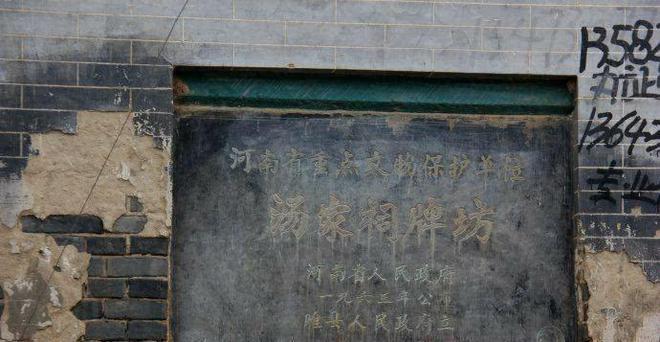 河南省重点文物保护单位
汤家祠牌坊
河南省人民政府
一九六三年公布
睢县人民政府立
13582
办证
13643
专业